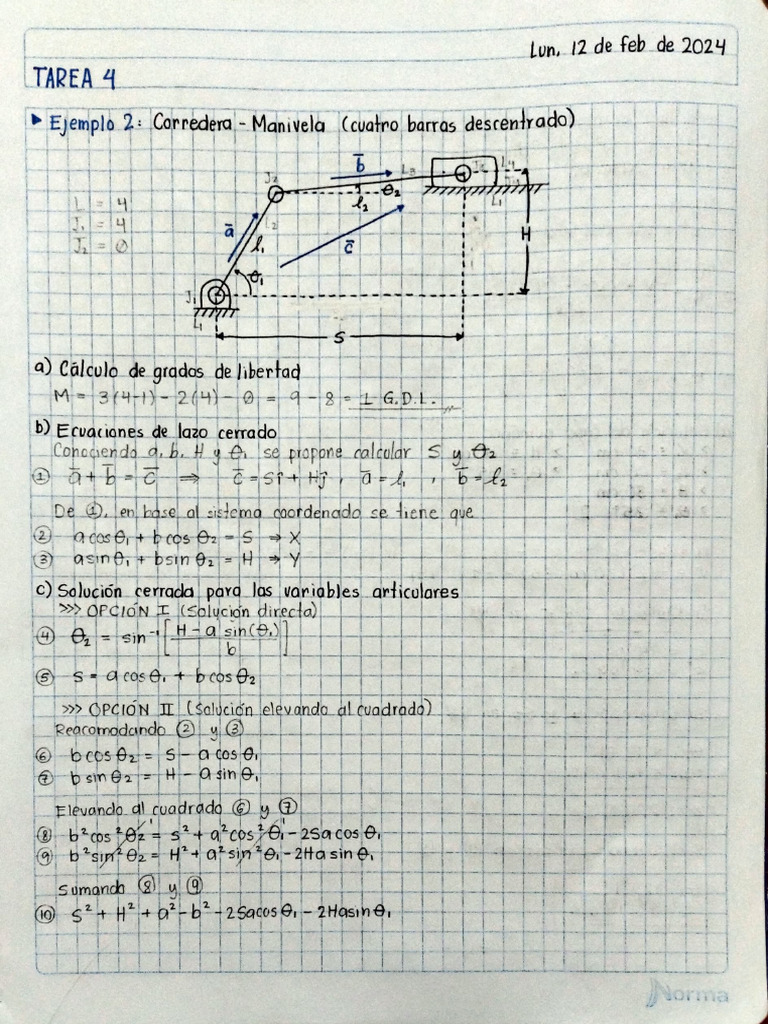 Lun, 12 de feb de 2024
TAREA 4
▶ Ejemplo 2: Corredera - Manivela (cuatro barras descentrado)
b̅
J₂
L₃
L₄
θ₂
l₂
L₁
L = 4
J₁ = 4
J₂ = 0
a̅
L₂
l₁
c̅
H
θ₁
J₁
L₁
S
a) Cálculo de grados de libertad
M = 3(4-1) - 2(4) - 0 = 9 - 8 = 1 G.D.L.
b) Ecuaciones de lazo cerrado
Conociendo a, b, H y θ₁ se propone calcular S y θ₂
① a̅ + b̅ = c̅ ⇒ c̅ = Sî + Hĵ , a̅ = l₁ , b̅ = l₂
De ①, en base al sistema coordenado se tiene que
② a cos θ₁ + b cos θ₂ = S → X
③ a sin θ₁ + b sin θ₂ = H → Y
c) Solución cerrada para las variables articulares
>>> OPCIÓN I (Solución directa)
④ θ₂ = sin⁻¹ [ H - a sin(θ₁) / b ]
⑤ S = a cos θ₁ + b cos θ₂
>>> OPCIÓN II (Solución elevando al cuadrado)
Reacomodando ② y ③
⑥ b cos θ₂ = S - a cos θ₁
⑦ b sin θ₂ = H - a sin θ₁
Elevando al cuadrado ⑥ y ⑦
⑧ b² cos² θ₂ = S² + a² cos² θ₁ - 2Sa cos θ₁
⑨ b² sin² θ₂ = H² + a² sin² θ₁ - 2Ha sin θ₁
Sumando ⑧ y ⑨
⑩ S² + H² + a² - b² - 2Sa cos θ₁ - 2Ha sin θ₁
Norma